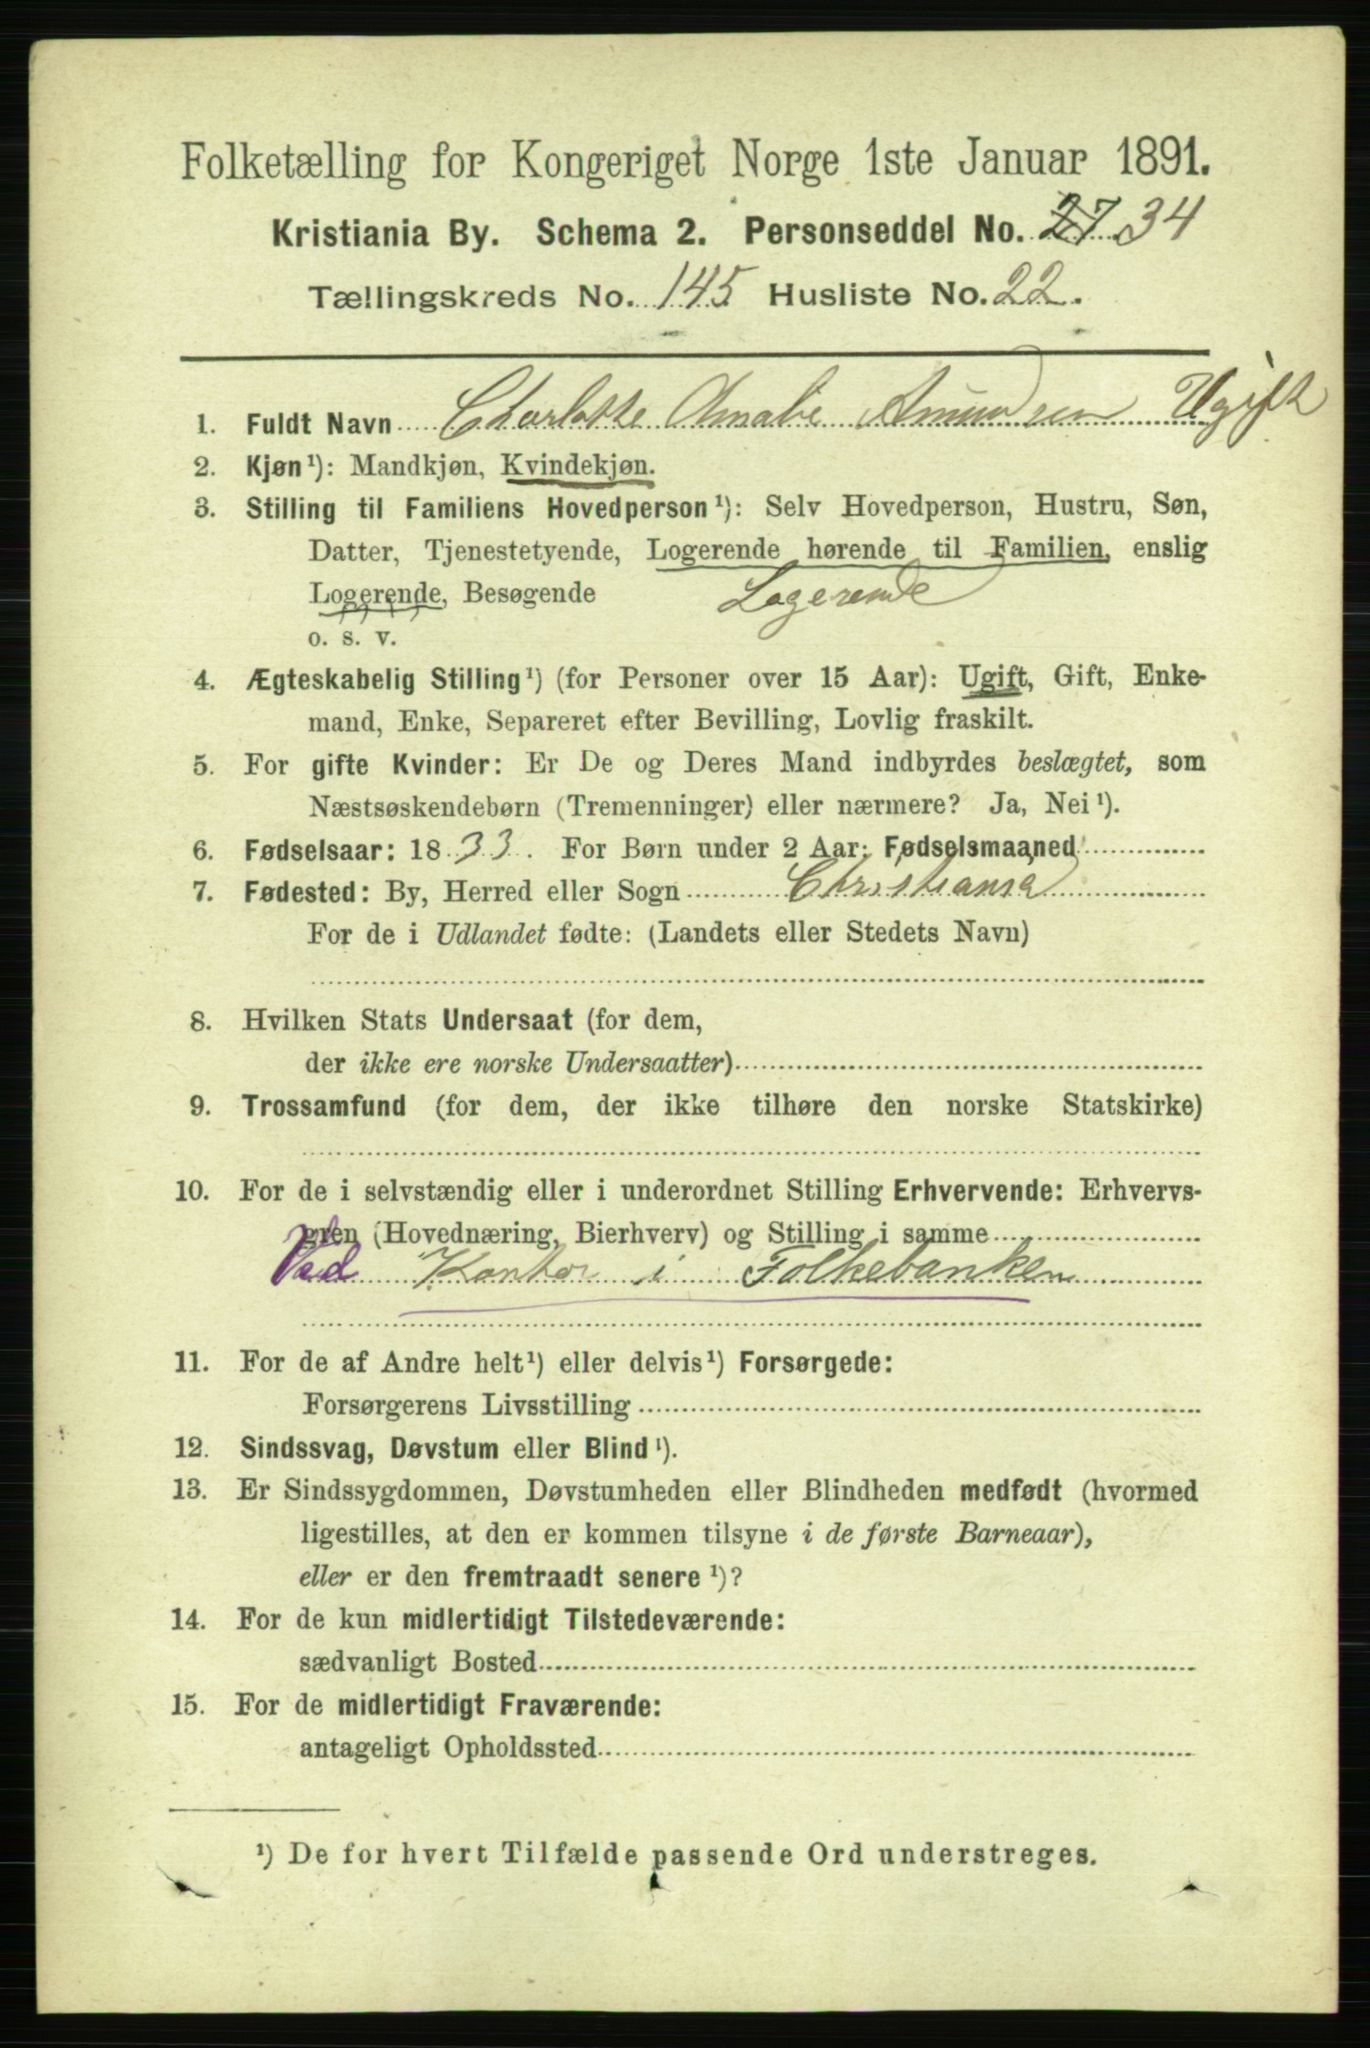 Folketælling for Kongeriget Norge 1ste Januar 1891.
Kristiania By. Schema 2. Personseddel No. 27 34
Tællingskreds No. 145 Husliste No. 22.
1. Fuldt Navn Charlotte Amalie Amundsen Ugift
2. Kjøn¹): Mandkjøn, Kvindekjøn.
3. Stilling til Familiens Hovedperson¹): Selv Hovedperson, Hustru, Søn,
Datter, Tjenestetyende, Logerende hørende til Familien, enslig
Logerende, Besøgende Logerende
o. s. v.
4. Ægteskabelig Stilling¹) (for Personer over 15 Aar): Ugift, Gift, Enke-
mand, Enke, Separeret efter Bevilling, Lovlig fraskilt.
5. For gifte Kvinder: Er De og Deres Mand indbyrdes beslægtet, som
Næstsøskendebørn (Tremenninger) eller nærmere? Ja, Nei¹).
6. Fødselsaar: 1833. For Børn under 2 Aar: Fødselsmaaned
7. Fødested: By, Herred eller Sogn Christiania
For de i Udlandet fødte: (Landets eller Stedets Navn)
8. Hvilken Stats Undersaat (for dem,
der ikke ere norske Undersaatter)
9. Trossamfund (for dem, der ikke tilhøre den norske Statskirke)
10. For de i selvstændig eller i underordnet Stilling Erhvervende: Erhvervs-
gren (Hovednæring, Bierhverv) og Stilling i samme
Ved Kontor i Folkebanken
11. For de af Andre helt¹) eller delvis¹) Forsørgede:
Forsørgerens Livsstilling
12. Sindssvag, Døvstum eller Blind¹).
13. Er Sindssygdommen, Døvstumheden eller Blindheden medfødt (hvormed
ligestilles, at den er kommen tilsyne i de første Barneaar),
eller er den fremtraadt senere¹)?
14. For de kun midlertidigt Tilstedeværende:
sædvanligt Bosted
15. For de midlertidigt Fraværende:
antageligt Opholdssted
¹) De for hvert Tilfælde passende Ord understreges.